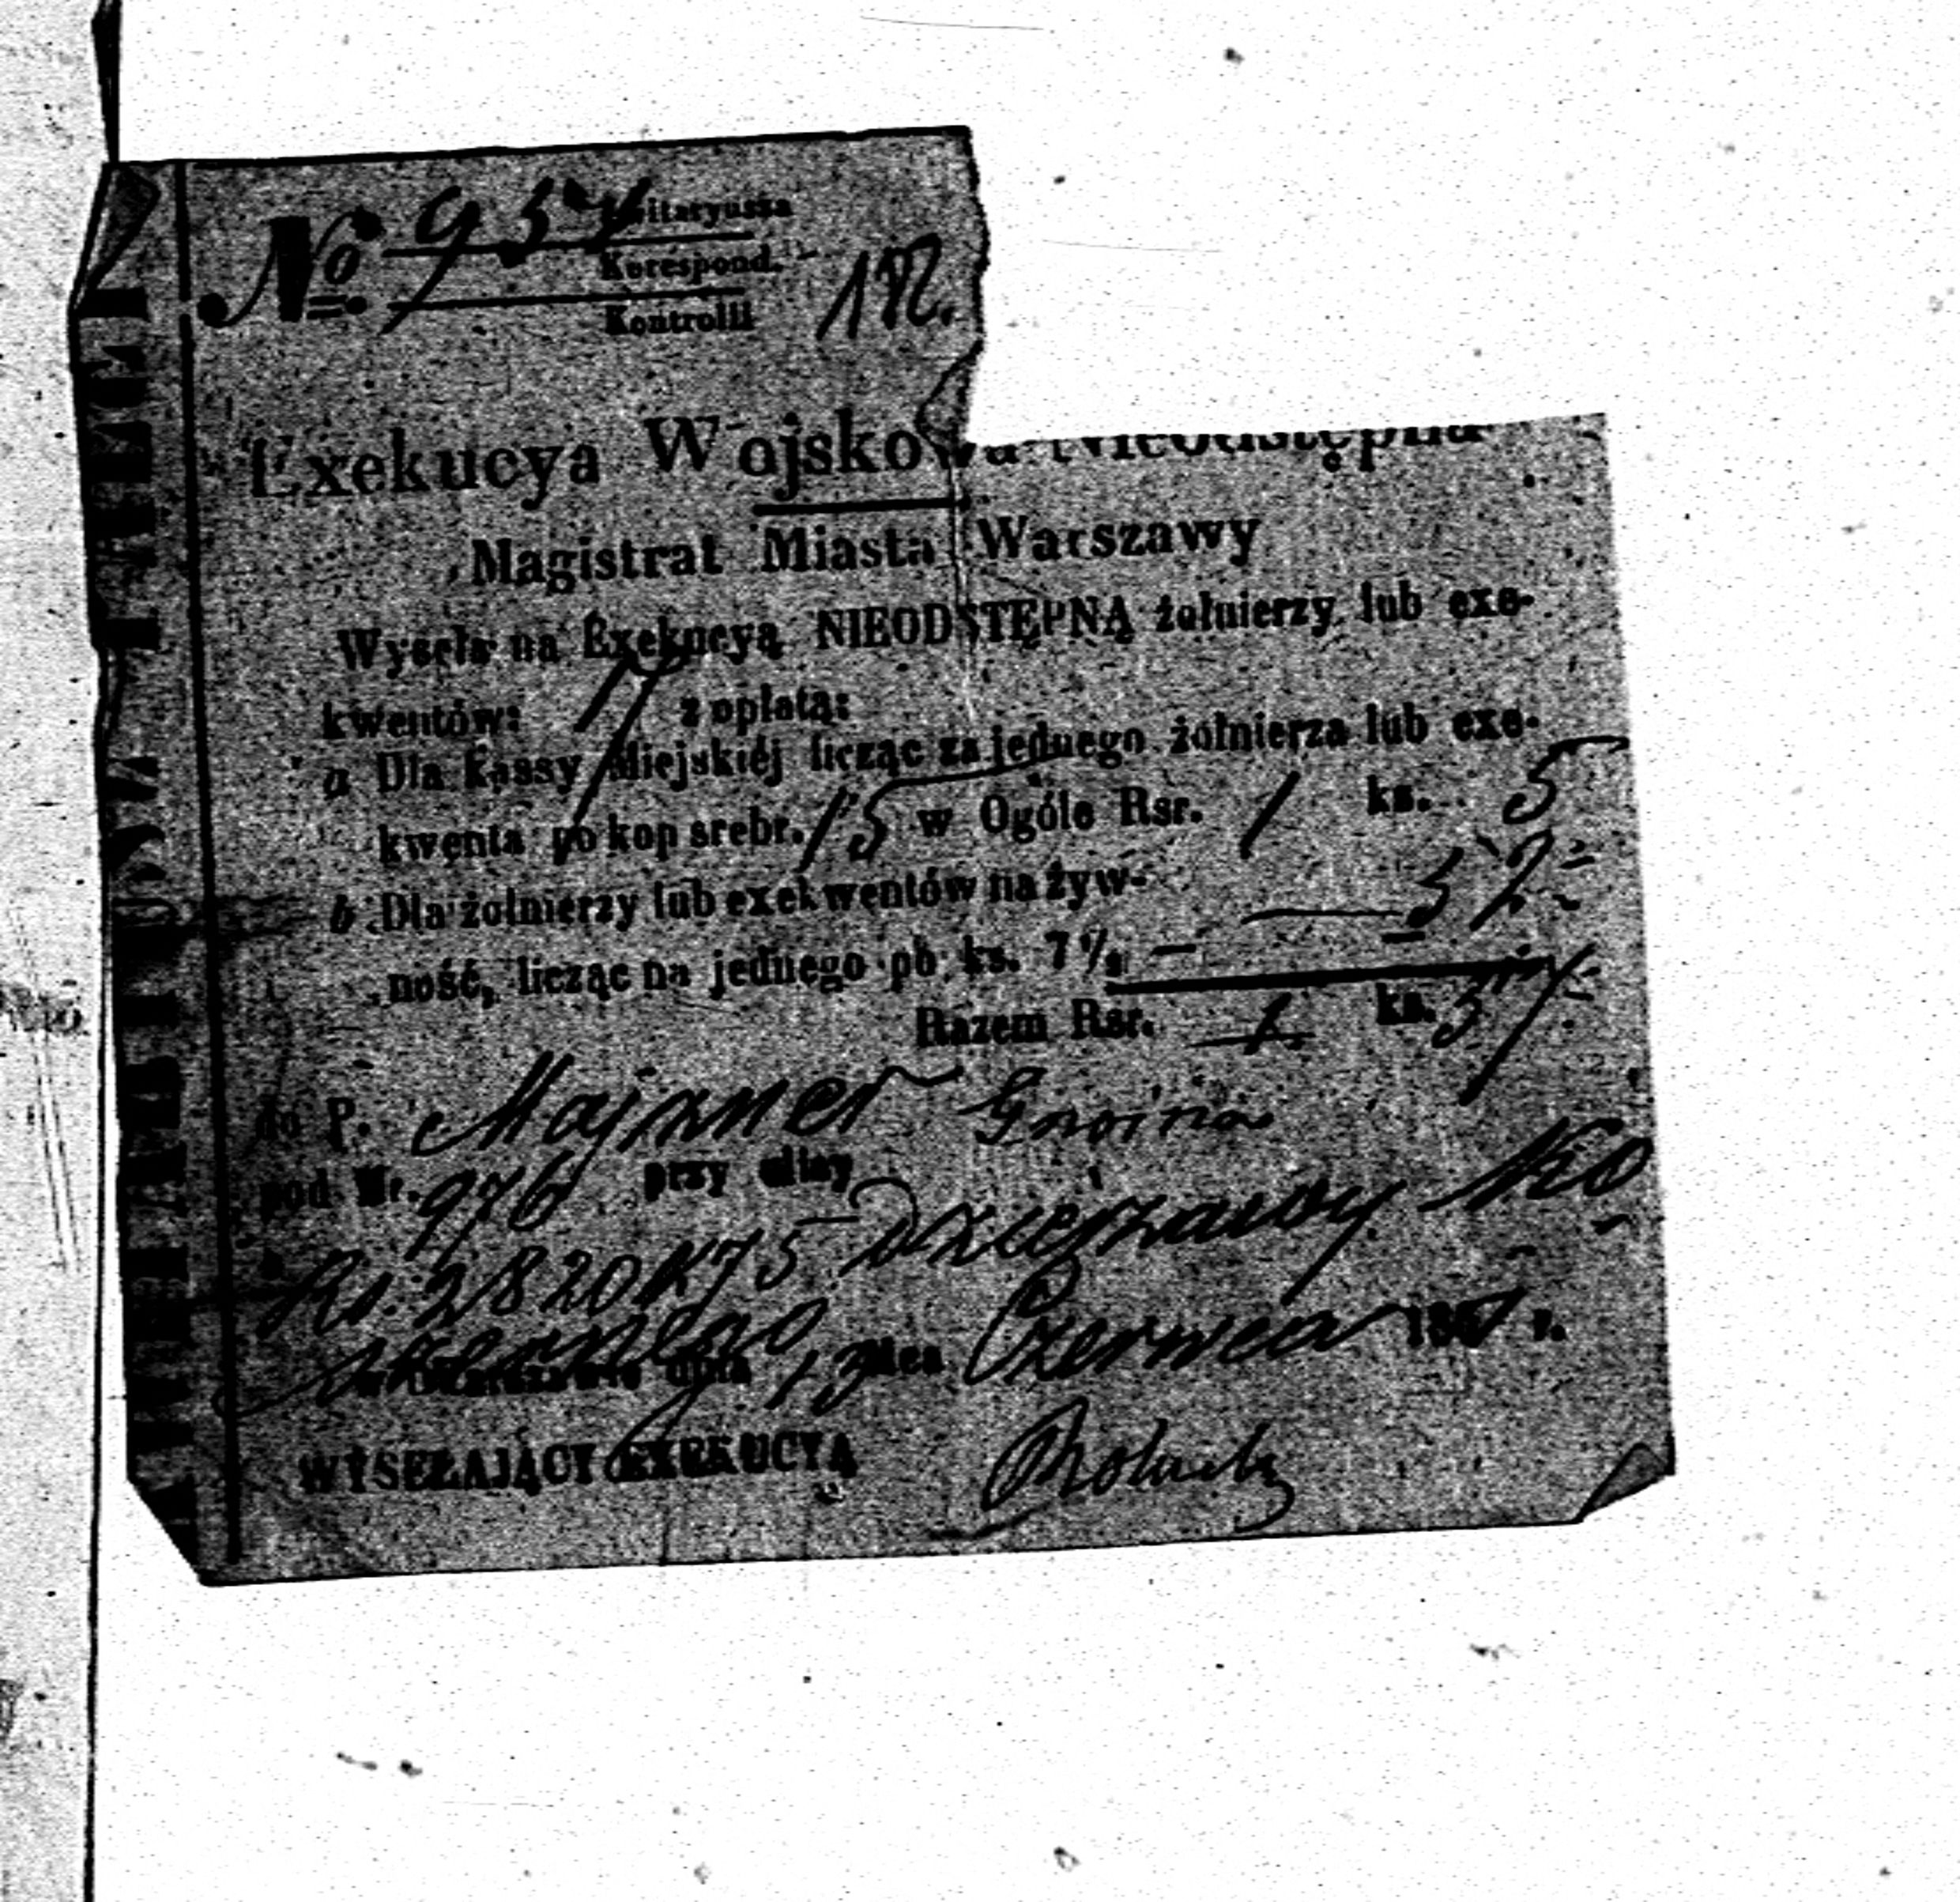 № 957 Kwitaryusza
Korespond.
Kontrolli
Exekucya Wojskowa Nieodstępna
Magistrat Miasta Warszawy
Wyseła na Exekucyą NIEODSTĘPNĄ żołnierzy lub exe-
kwentów: 7 z opłatą:
a Dla Kassy Miejskiéj licząc za jednego żołnierza lub exe-
kwenta po kop srebr. 15 w Ogóle Rsr. 1 ks. 5
b Dla żołnierzy lub exekwentów na żyw- 52
ność, licząc na jednego po ks. 7½ —
Razem Rsr. 1 ks. 57
do P. Majzner Gnoina
pod Nr. 976 przy ulicy
Rs. 2820 K 75 Dzierżawy Ko
w Warszawie dnia 13 Mca Czerwca 186 r.
WYSEŁAJĄCY EXEKUCYĄ